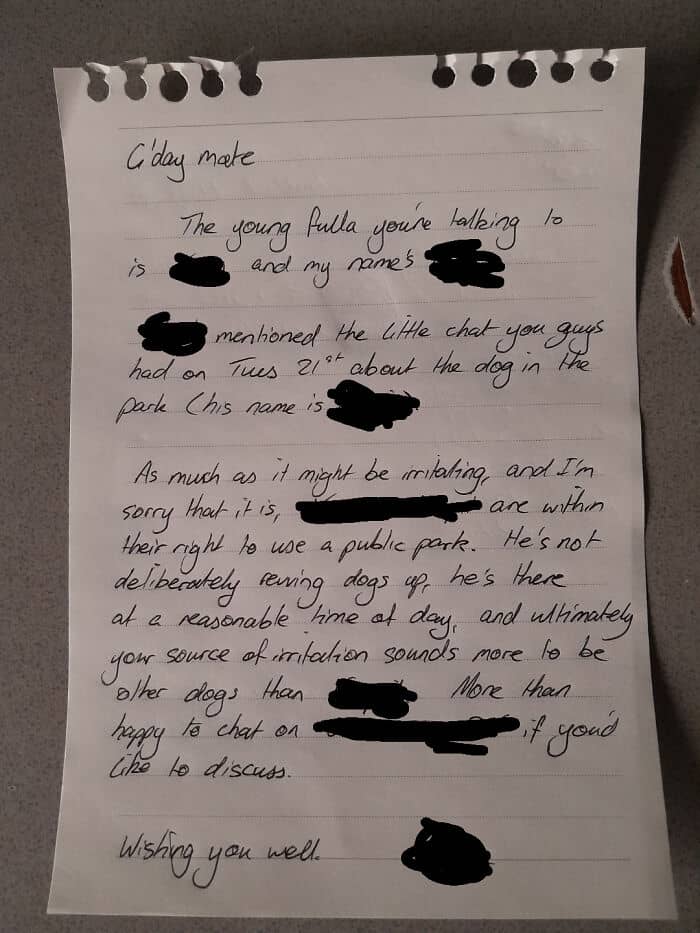 G'day mate
The young fulla you're talking to
is and my name's
mentioned the little chat you guys
had on Tues 21st about the dog in the
park (his name is
As much as it might be irritating, and I'm
sorry that it is, are within
their right to use a public park. He's not
deliberately revving dogs up, he's there
at a reasonable time of day, and ultimately
your source of irritation sounds more to be
other dogs than More than
happy to chat on , if you'd
like to discuss.
Wishing you well.